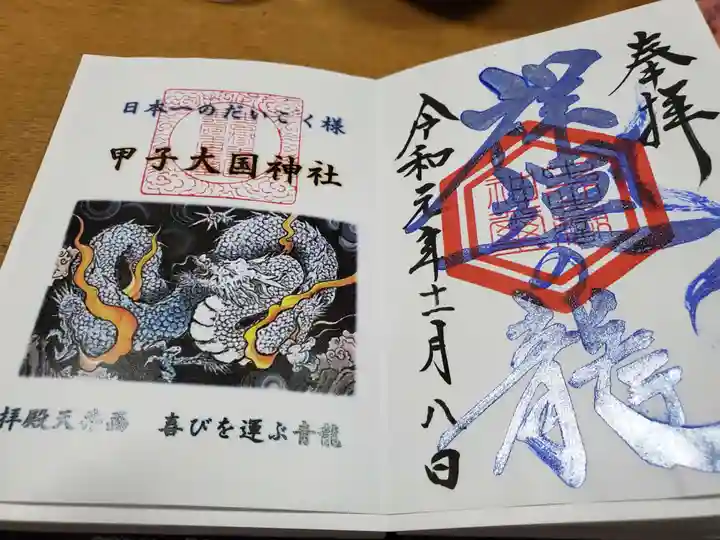 日本一のだいこく様
甲子大国神社
拝殿天井画 喜びを運ぶ青龍
奉拝
の龍
令和元年十一月八日